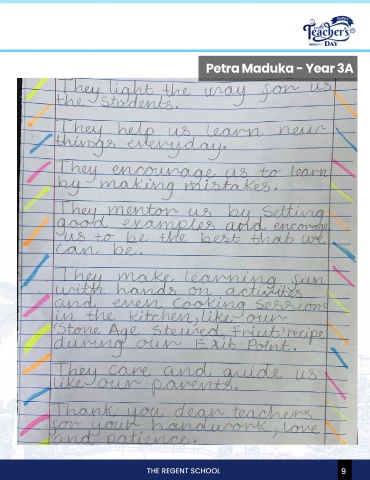 Teacher's
DAY
Petra Maduka - Year 3A
They light the way for us
the students.
They help us learn new
things everyday.
They encourage us to learn
by making mistakes.
They mentor us by setting
good examples and encorage
us to be the best that we
can be.
They make learning fun
with hands on activites
and, even, Cooking Sessions
in the kitchen, like our
'Stone Age Stewed Friut' recipe
during our Exit Point.
They care and guide us
like our parents.
Thank you dear teachers
for your handwork, love
and patience.
THE REGENT SCHOOL
9